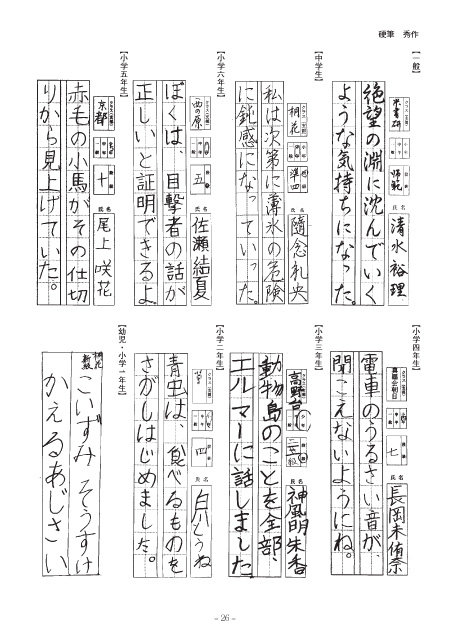 硬筆 秀作
【一般】
師範
氏名
清水裕理
絶望の淵に沈んでいく
ような気持ちになった。
【中学生】
桐花
準四
氏名
隨念礼央
私は次第に薄氷の危険
に鈍感になっていった。
【小学六年生】
西の原
五
氏名
佐瀬結夏
ぼくは、目撃者の話が
正しいと証明できるよ。
【小学五年生】
京都
十
氏名
尾上咲花
赤毛の小馬がその仕切
りから見上げていた。
【小学四年生】
七
氏名
長岡未侑奈
電車のうるさい音が、
聞こえないようにね。
【小学三年生】
高野台
氏名
神風明朱香
動物島のことを全部、
エルマーに話しました
【小学二年生】
四
氏名
白川
青虫は、食べるものを
さがしはじめました。
【幼児・小学一年生】
桐花
新級
こいずみそうすけ
かえるあじさい
- 26 -